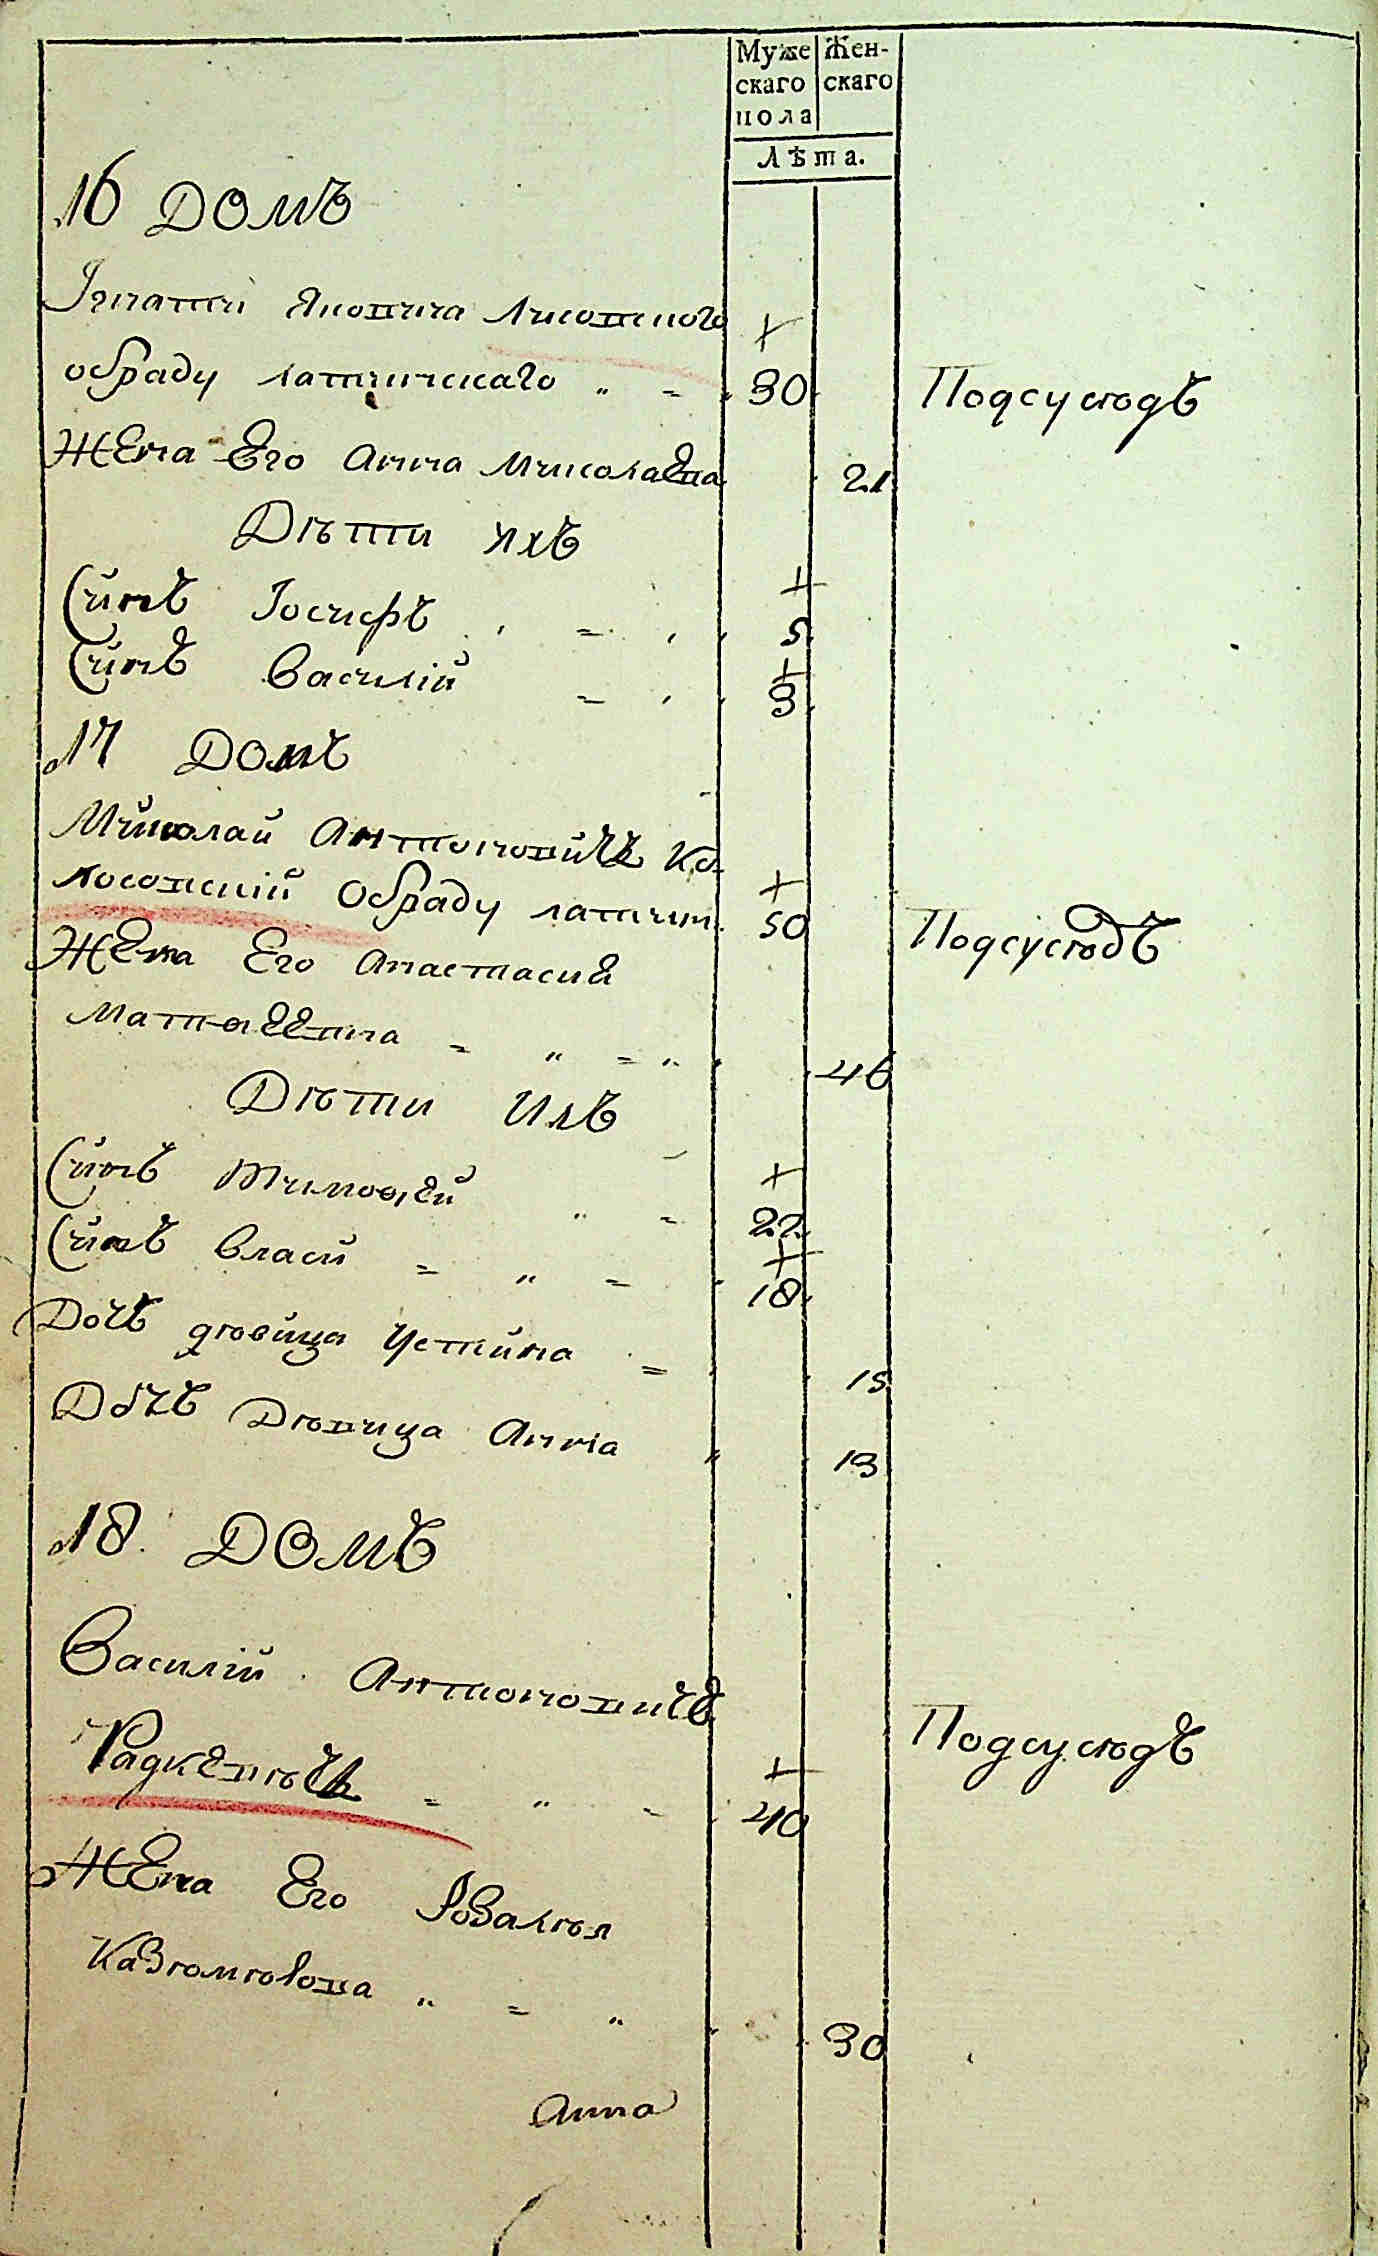 Муже Жен-
скаго скаго
пола
Лѣта.
16 домъ
Игнатій Яковича Лисовского
обряду латинскаго „ = 30 Подсусѣдъ
Жена Его Анна Миколаевна 21
Дѣти ихъ
Синъ Іосифъ = 5
Синъ Василій = 3
17 домъ
Миколай Антоновичъ Ко
лосовскій Обряду латин. 50 Подсусѣдъ
Жена Его Анастасия
Матѳеевна = „ = „ 46
Дѣти ихъ
Синъ Тимоѳей „ = 22
Синъ Власи = „ = 18
Дочъ дѣвица Устина = 15
Дочъ Дѣвица Анна „ 13
18. домъ
Василій Антоновичъ
Подсусѣдъ
= „ = 40
Жена Его Розалѣя
Казѣмѣровна „ = „ 30
Анна